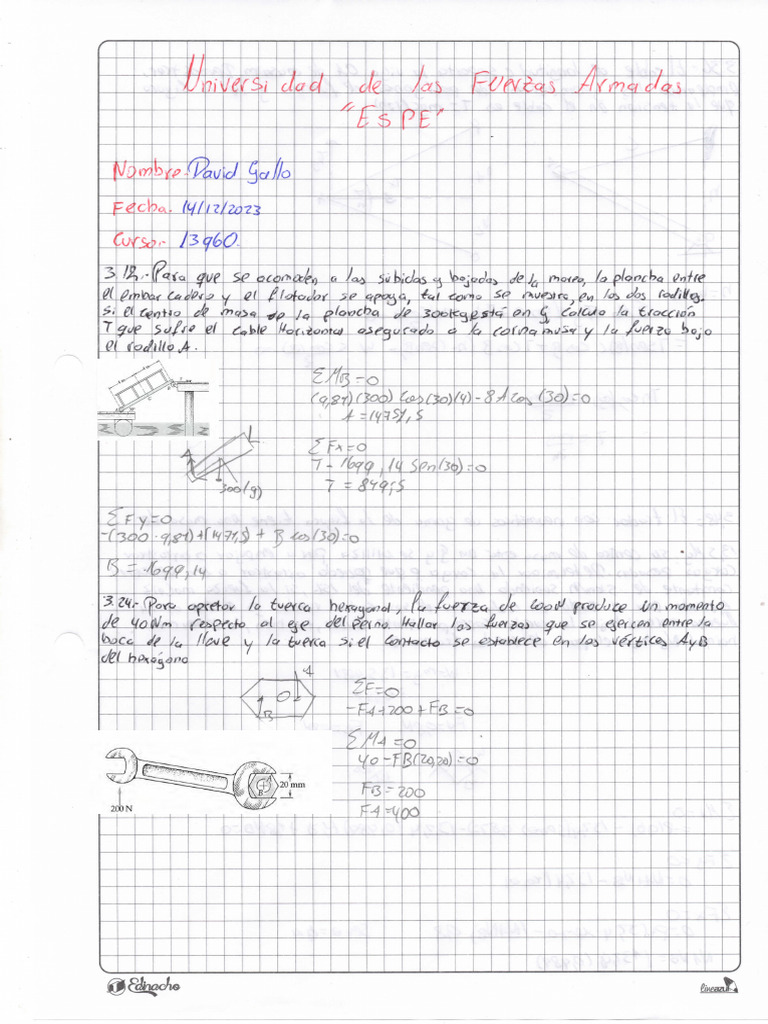 Universidad de las Fuerzas Armadas
"ESPE"
Nombre.- David Gallo
Fecha. 14/12/2023
Curso:- 13960.
3.12.- Para que se acomoden a las subidas y bajadas de la marea, la plancha entre
el embarcadero y el flotador se apoya, tal como se muestra, en los dos rodillos.
si el centro de masa de la plancha de 300kg está en G calculo la tracción
T que sufre el cable Horizontal asegurado a la cornamusa y la fuerza bajo
el rodillo A.
ΣMB=0
(9,81)(300) Cos(30)(4) - 8A cos(30)=0
A=1471,5
ΣFx=0
T - 1699,14 Sen(30)=0
T = 849,5
300(g)
ΣFy=0
-(300·9,81)+(1471,5) + B cos(30)=0
B = 1699,14
3.24.- Para apretar la tuerca hexagonal, la fuerza de 200N produce un momento
de 40Nm respecto al eje del perno. Hallar las fuerzas que se ejercen entre la
boca de la llave y la tuerca si el contacto se establece en los vértices A y B
del hexágono
A
B
ΣF=0
-FA+200+FB=0
ΣMA=0
40-FB(20,20)=0
FB=200
FA=400
A
B
20 mm
200 N
Edinacho
lineazul